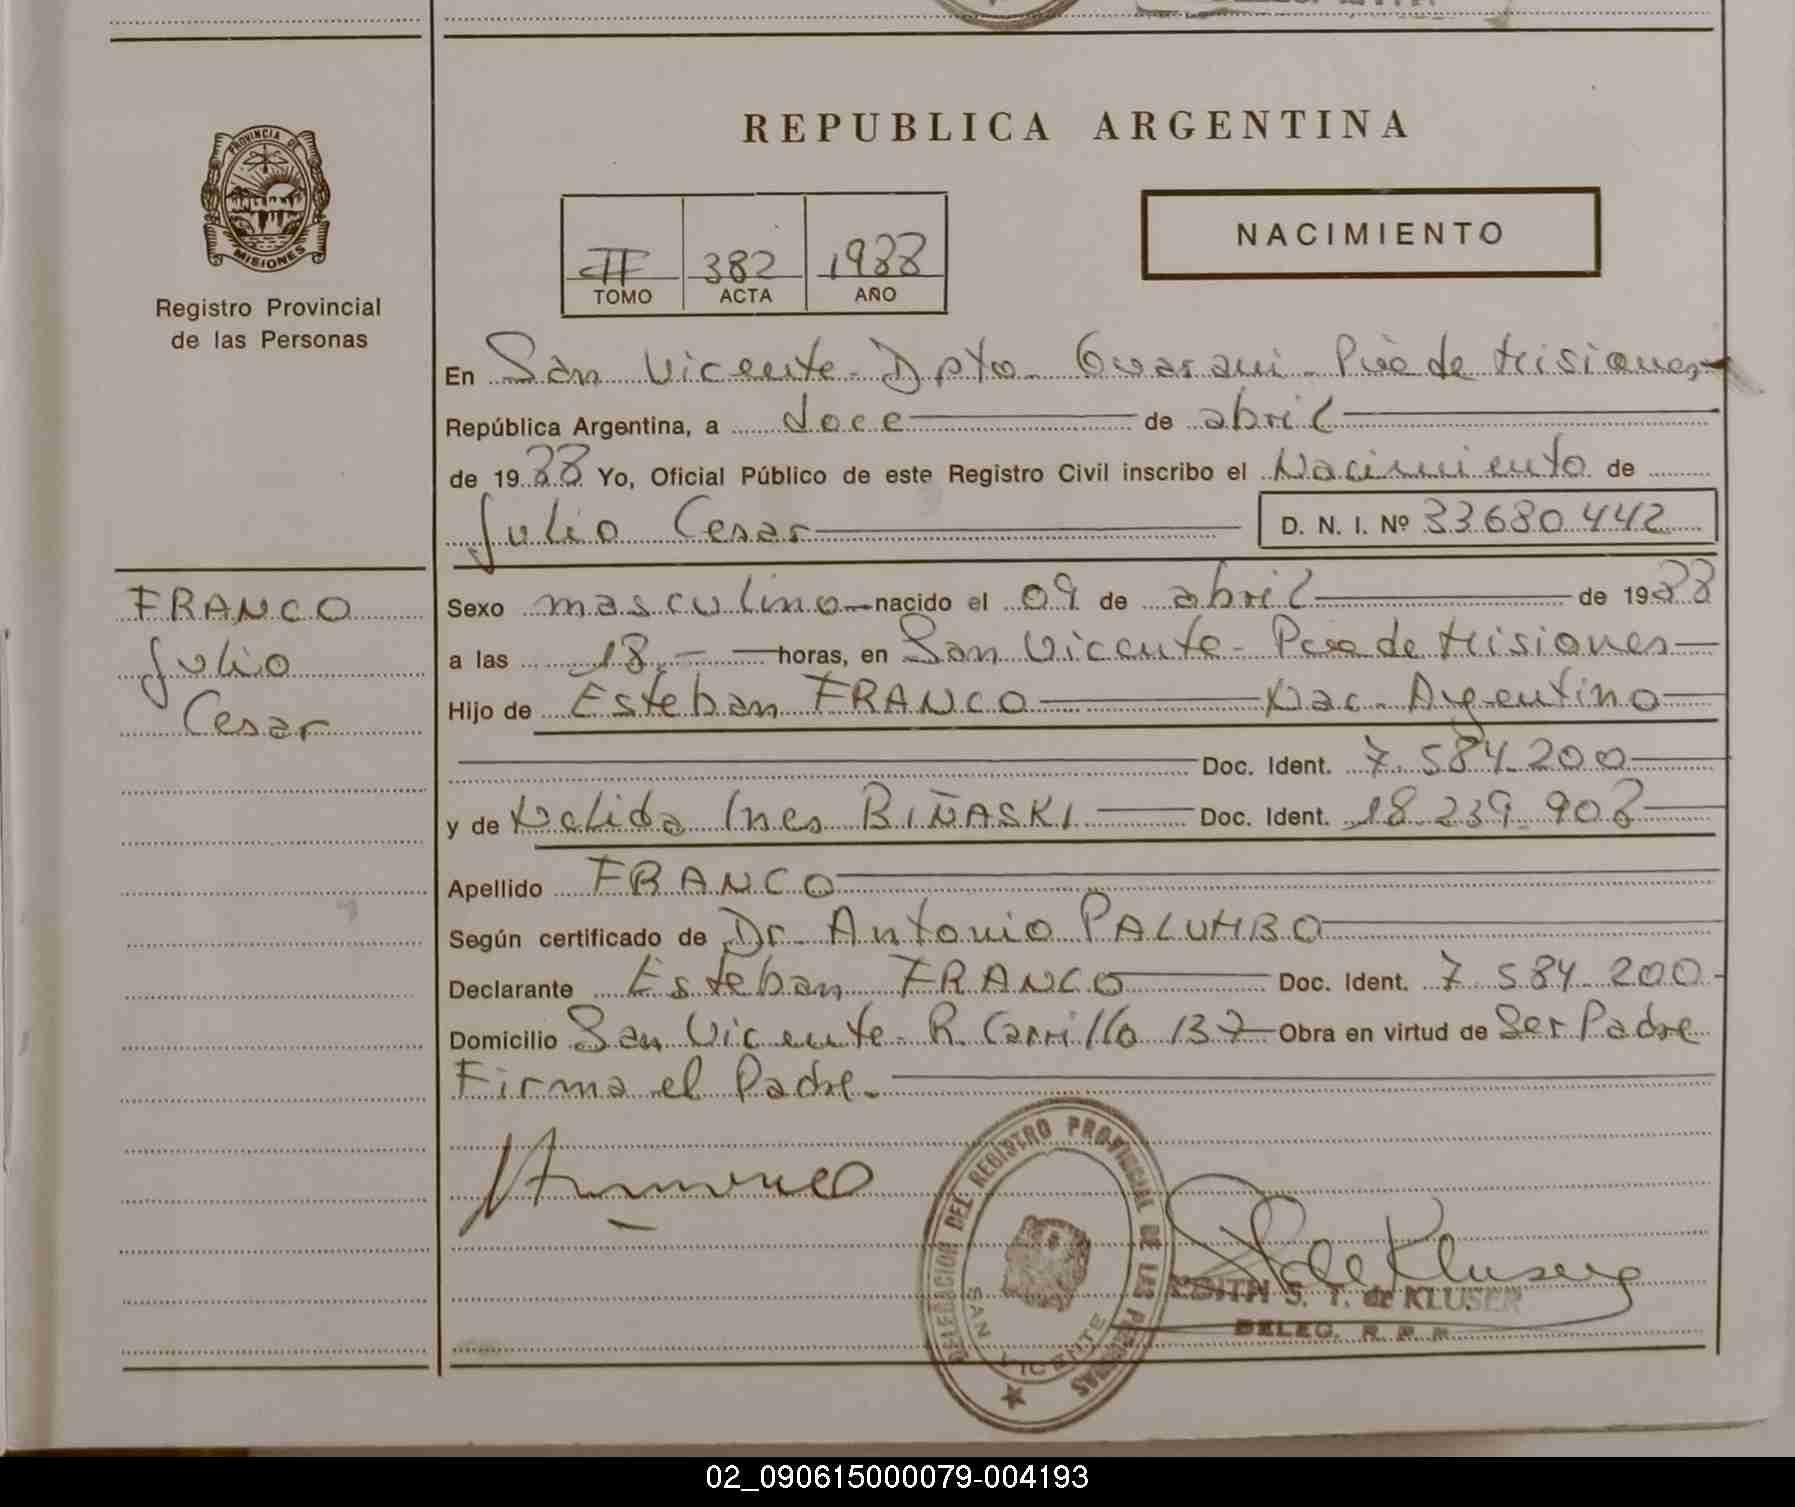 REPUBLICA ARGENTINA
PROVINCIA DE
MISIONES
Registro Provincial
de las Personas
II 382 1988
TOMO ACTA AÑO
NACIMIENTO
En San Vicente - Dpto - Guarani - Pcia de Misiones -
República Argentina, a doce de abril
de 1988 Yo, Oficial Público de este Registro Civil inscribo el Nacimiento de
Julio Cesar D. N. I. Nº 33680442
FRANCO
Julio
Cesar
Sexo masculino nacido el 09 de abril de 1988
a las 18.- horas, en San Vicente - Pcia de Misiones
Hijo de Esteban FRANCO Nac. Argentino
Doc. Ident. 7.584.200
y de Nelida Ines BIÑASKI Doc. Ident. 18.239.908
Apellido FRANCO
Según certificado de Dr. Antonio PALUMBO
Declarante Esteban FRANCO Doc. Ident. 7.584.200
Domicilio San Vicente - R. Carrillo 137 Obra en virtud de Ser Padre
Firma el Padre.
DELEGACION DEL REGISTRO PROVINCIAL DE LAS PERSONAS
SAN VICENTE
de Kluser
S. T. de KLUSER
DELEG. R. P. P.
02_090615000079-004193